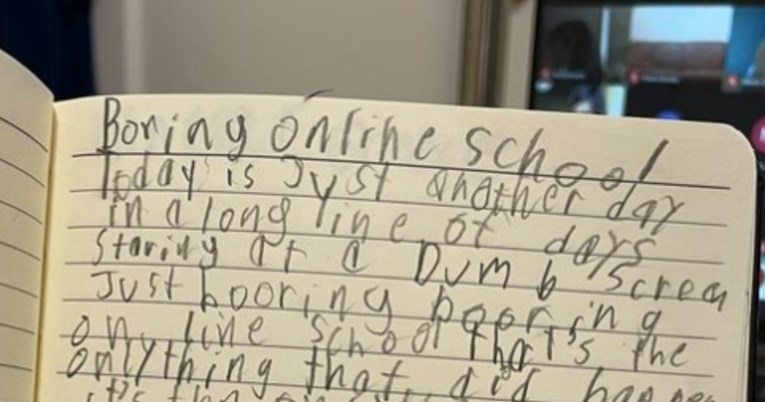 Boring online school
Today is Just another day
in a long line of days
Staring at a Dumb Screen
Just booring boorring
on line school that's the
onlything that did happen
it's the